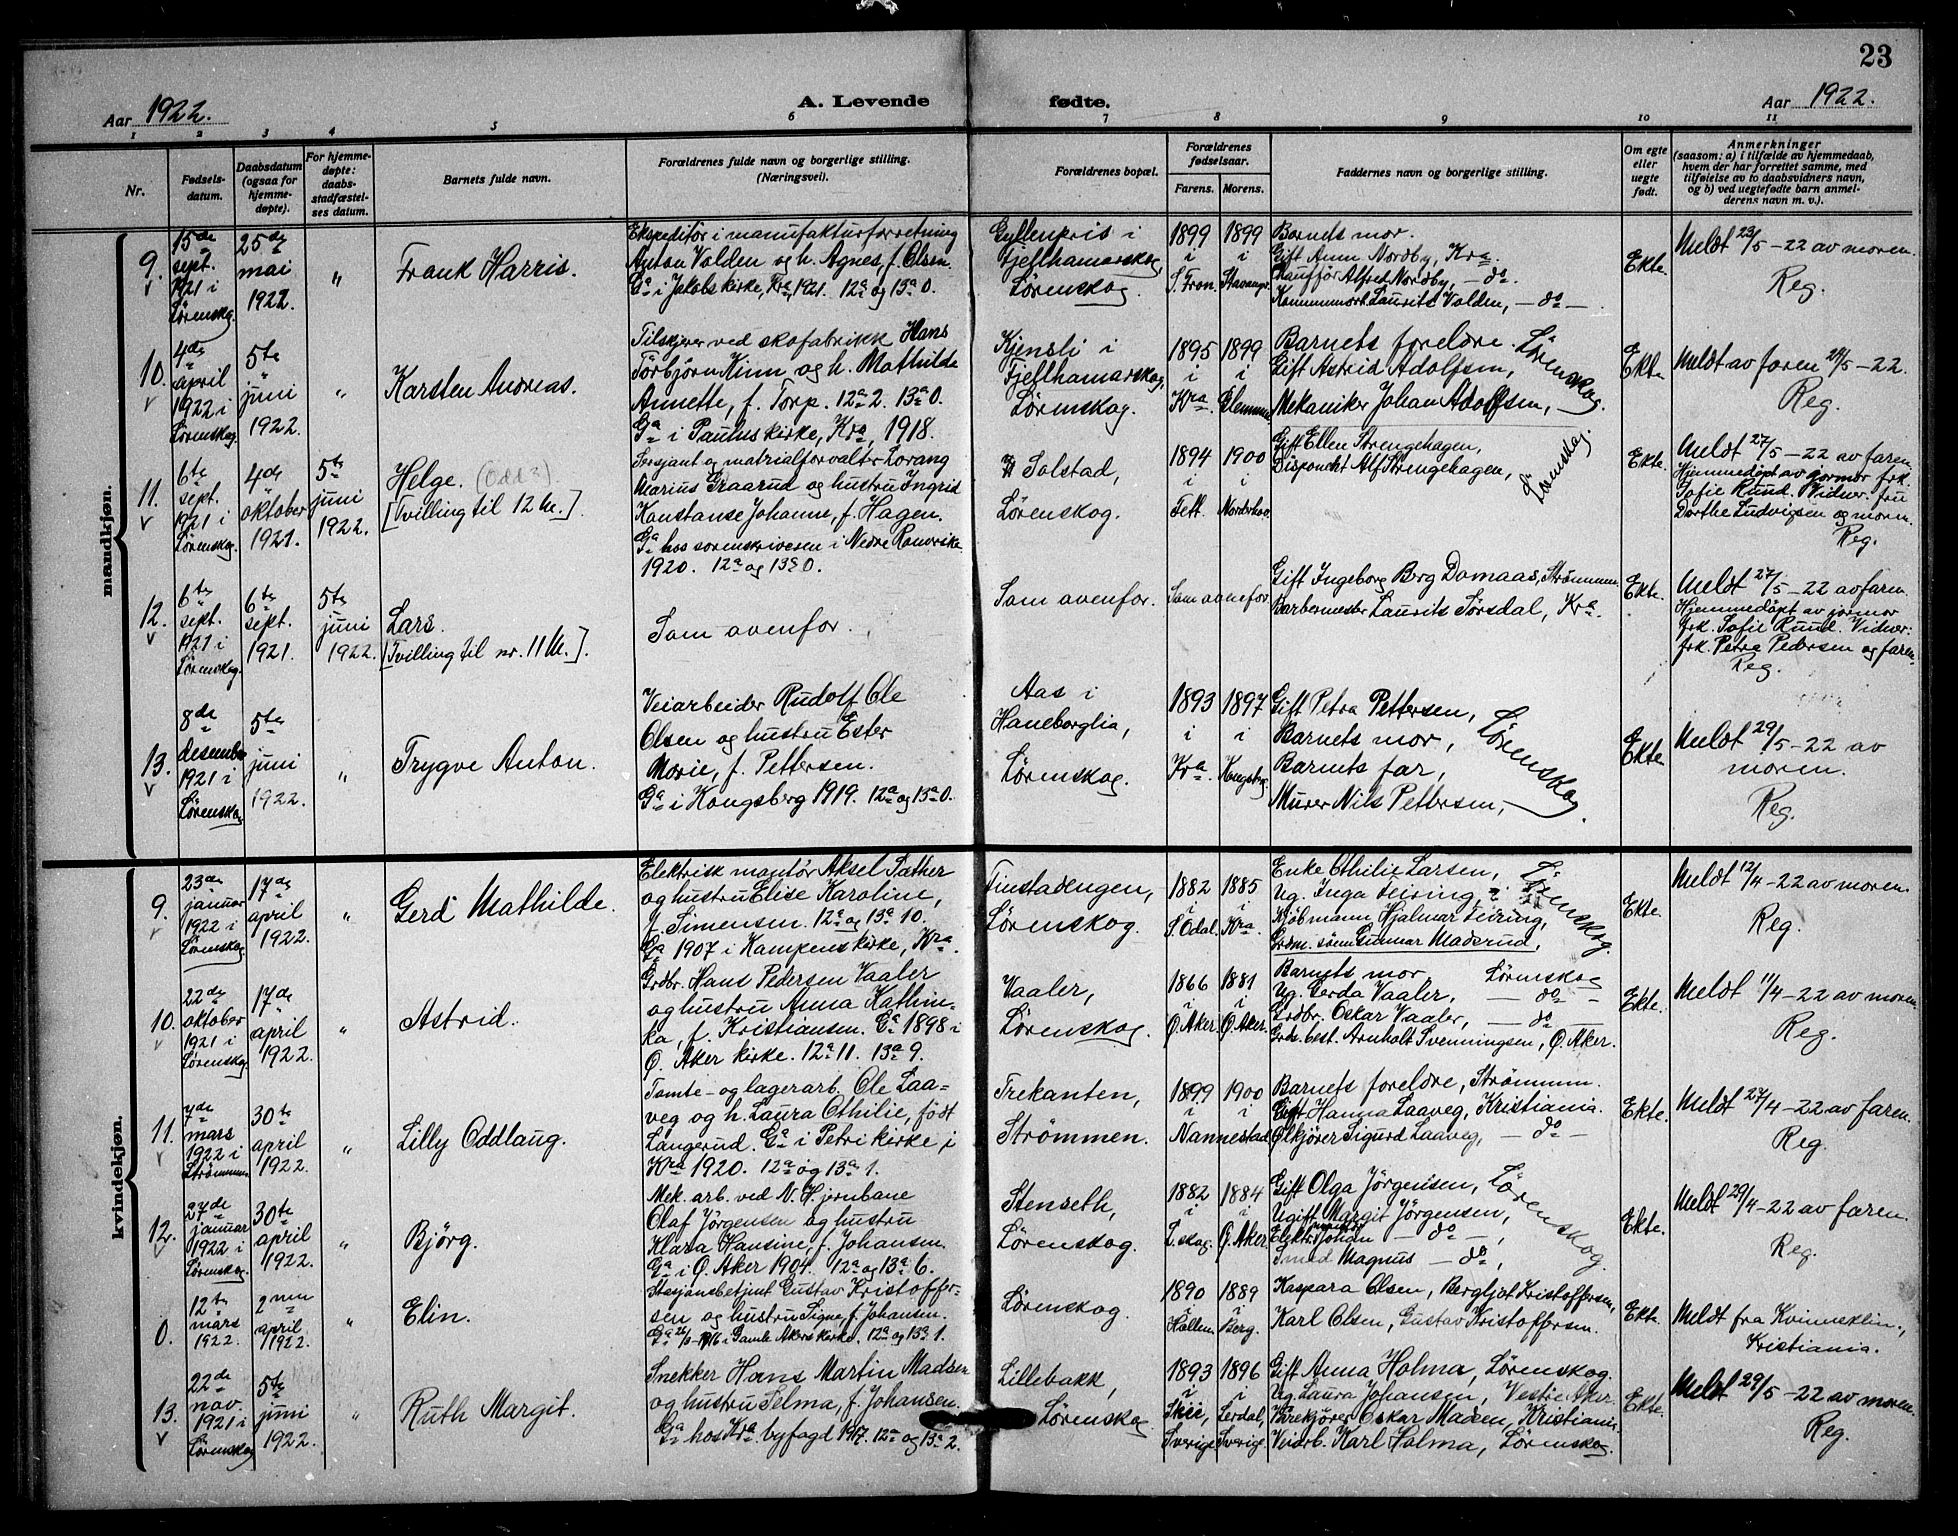 23
Aar 1922.
A. Levende fødte.
Aar 1922.
1 2 3 4 5 6 7 8 9 10 11
Nr.
Fødsels-
datum.
Daabsdatum
(ogsaa for
hjemme-
døpte).
For hjemme-
døpte:
daabs-
stadfæstel-
ses datum.
Barnets fulde navn.
Forældrenes fulde navn og borgerlige stilling.
(Næringsvei).
Forældrenes bopæl.
Forældrenes
fødselsaar.
Farens. Morens.
Faddernes navn og borgerlige stilling.
Om egte
eller
uegte
født.
Anmerkninger
(saasom: a) i tilfælde av hjemmedaab,
hvem der har forrettet samme, med
tilføielse av to daabsvidners navn,
og b) ved uegtefødte barn anmel-
derens navn m. v.).
mandkjøn.
9.
15de
sept.
1921 i
Lørenskog.
25de
mai
1922.
"
Frank Harris.
Ekspeditør i manufakturforretning
Anton Volden og h. Agnes, f. Olsen.
Ga i Jakobs kirke, Kra, 1921. 12a og 13a 0.
Gyllenpris i
Fjellhamarskog,
Lørenskog.
1899 1899
i i
S. Fron. Stavanger
Barnets mor.
Gift Anna Nordby, Kra.
Chauffør Alfred Nordby, — do.
Laurits Volden, — do —
Ekte.
Meldt 23/5 – 22 av moren.
Reg.
10.
4de
april
1922 i
Lørenskog.
5te
juni
1922.
"
Karsten Andreas.
Tilskjærer ved skofabrikk Hans
Torbjørn Kinn og h. Mathilde
Annette, f. Torp. 12a 2. 13a 0.
Ga i Paulus kirke, Kra, 1918.
Kjensli i
Fjellhamarskog,
Lørenskog.
1895 1899
i i
Kra. Glemmen
Barnets foreldre.
Gift Astrid Adolfsen,
Mekaniker Johan Adolfsen,
Lørenskog.
Ekte.
Meldt av faren 24/5 – 22.
Reg.
11.
6te
sept.
1921 i
Lørenskog.
4de
oktober
1921.
5te
juni
1922.
Helge. (Odd?).
[Tvilling til 12 M.].
Sersjant og matrialforvalter Lorang
Marius Graarud og hustru Ingrid
Konstanse Johanne, f. Hagen.
Ga hos sorenskriveren i Nedre Romerike
1920. 12a og 13a 0.
Solstad,
Lørenskog.
1894 1900
i i
Fett. Norderhov
Gift Ellen Strengehagen,
Disponent Alf Strengehagen,
Lørenskog.
Ekte.
Meldt 27/5 – 22 av faren.
Hjemmedøpt av jormor frk.
Sofie Ruud. Vidner: fru
Dorthe Ludvigsen og moren.
Reg.
12.
6te
sept.
1921 i
Lørenskog.
6te
sept.
1921.
5te
juni
1922.
Lars.
[Tvilling til nr. 11 M.].
Som ovenfor.
Som ovenfor.
Som ovenfor
Gift Ingeborg Berg Domaas, Strømmen.
Barbermester Laurits Sørsdal, Kra.
Ekte.
Meldt 27/5 – 22 av faren.
Hjemmedøpt av jormor
frk. Sofie Ruud. Vidner:
frk. Petra Pedersen og faren.
Reg.
13.
8de
desember
1921 i
Lørenskog.
5te
juni
1922.
"
Trygve Anton.
Veiarbeider Rudolf Ole
Olsen og hustru Ester
Marie, f. Pettersen.
Ga i Kongsberg 1919. 12a og 13a 0.
Aas i
Haneborglia,
Lørenskog.
1893 1897
i i
Kra. Kongsberg
Gift Petra Pettersen,
Barnets mor,
Barnets far,
Murer Nils Pettersen,
Lørenskog.
Ekte.
Meldt 29/5 – 22 av
moren.
Reg.
kvindekjøn.
9.
23de
januar
1922 i
Lørenskog.
17de
april
1922.
"
Gerd Mathilde.
Elektrisk montør Aksel Sæther
og hustru Elise Karoline,
f. Simensen. 12a og 13a 10.
Ga 1907 i Kampens kirke, Kra.
Finstadengen,
Lørenskog.
1882 1885
i i
S. Odal. Kra.
Enke Othilie Larsen,
Ug. Inga Feiring,
Kjøbmann Hjalmar Feiring,
Grdm. søn Gunnar Maderud,
Lørenskog.
Ekte.
Meldt 12/4 – 22 av moren.
Reg.
10.
22de
oktober
1921 i
Lørenskog.
17de
april
1922.
"
Astrid.
Grdbr. Hans Pedersen Vaaler
og hustru Anna Kathin-
ka, f. Kristiansen. Ga 1898 i
Ø. Aker kirke. 12a 11. 13a 9.
Vaaler,
Lørenskog.
1866 1881
i i
Ø. Aker. Ø. Aker.
Barnets mor, Lørenskog
Ug. Gerda Vaaler, — do —
Grdbr. Oskar Vaaler, — do —
Grds. best. Arnholt Svenningsen, Ø. Aker.
Ekte.
Meldt 11/4 – 22 av moren.
Reg.
11.
7de
mars
1922 i
Strømmen.
30te
april
1922.
"
Lilly Oddlaug.
Tomte- og lagerarb. Ole Laa-
veg og h. Laura Othilie, født
Langerud. Ga i Petri kirke i
Kra 1920. 12a og 13a 1.
Trekanten,
Strømmen.
1899 1900
i i
Nannestad
Barnets foreldre, Strømmen.
Gift Hanna Laaveg, Kristiania.
Ølkjører Sigurd Laaveg, — do —
Ekte.
Meldt 27/4 – 22 av faren.
Reg.
12.
27de
januar
1922 i
Lørenskog.
30te
april
1922.
"
Bjørg.
Mek. arb. ved N. Hjernbane
Olaf Jörgensen og hustru
Klara Hansine, f. Johansen.
Ga i Ø. Aker 1904. 12a og 13a 6.
Stenseth,
Lørenskog.
1882 1884
i i
L.skog. Ø. Aker.
Gift Olga Jörgensen,
Ugift Margit Jörgensen,
Elektr. Johan — do —,
Smed Magnus — do,
Lørenskog.
Ekte.
Meldt 29/4 – 22 av faren.
Reg.
0.
12te
mars
1922.
2nen
april
1922.
"
Elin.
Stasjonsbetjent Gustav Kristoffer-
sen og hustru Signe, f. Johansen.
Ga 1916 i Gamle Akers kirke. 12a og 13a 1.
Lørenskog.
1890 1889
i i
Berg.
Kaspara Olsen, Bergljot Kristoffersen,
Karl Olsen, Gustav Kristoffersen.
Ekte.
Meldt fra Kvinneklin.,
Kristiania.
13.
22de
nov.
1921 i
Lørenskog
5te
juni
1922.
"
Ruth Margit.
Snekker Hans Martin Madsen
og hustru Selma, f. Johansen.
Ga hos Kra. byfogd 1917. 12a og 13a 2.
Lillebakk,
Lørenskog
1893 1896
i i
Skee, Lerdal,
Sverige. Sverige.
Gift Anna Holma, Lørenskog.
Ug. Laura Johansen, Vestre Aker.
Kjører Oskar Madsen, Kristiania.
Veiarb. Karl Holma, Lørenskog.
Ekte.
Meldt 29/5 – 22 av moren.
Reg.